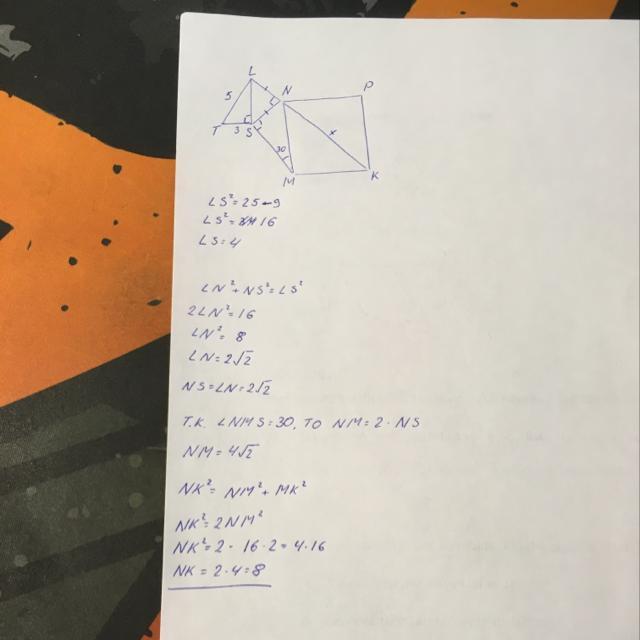 L
5
N
P
T
3
S
x
30
M
K
LS² = 25 - 9
LS² = 16
LS = 4
LN² + NS² = LS²
2LN² = 16
LN² = 8
LN = 2√2
NS = LN = 2√2
Т.К. ∠NMS = 30, ТО NM = 2 · NS
NM = 4√2
NK² = NM² + MK²
NK² = 2NM²
NK² = 2 · 16 · 2 = 4 · 16
NK = 2 · 4 = 8